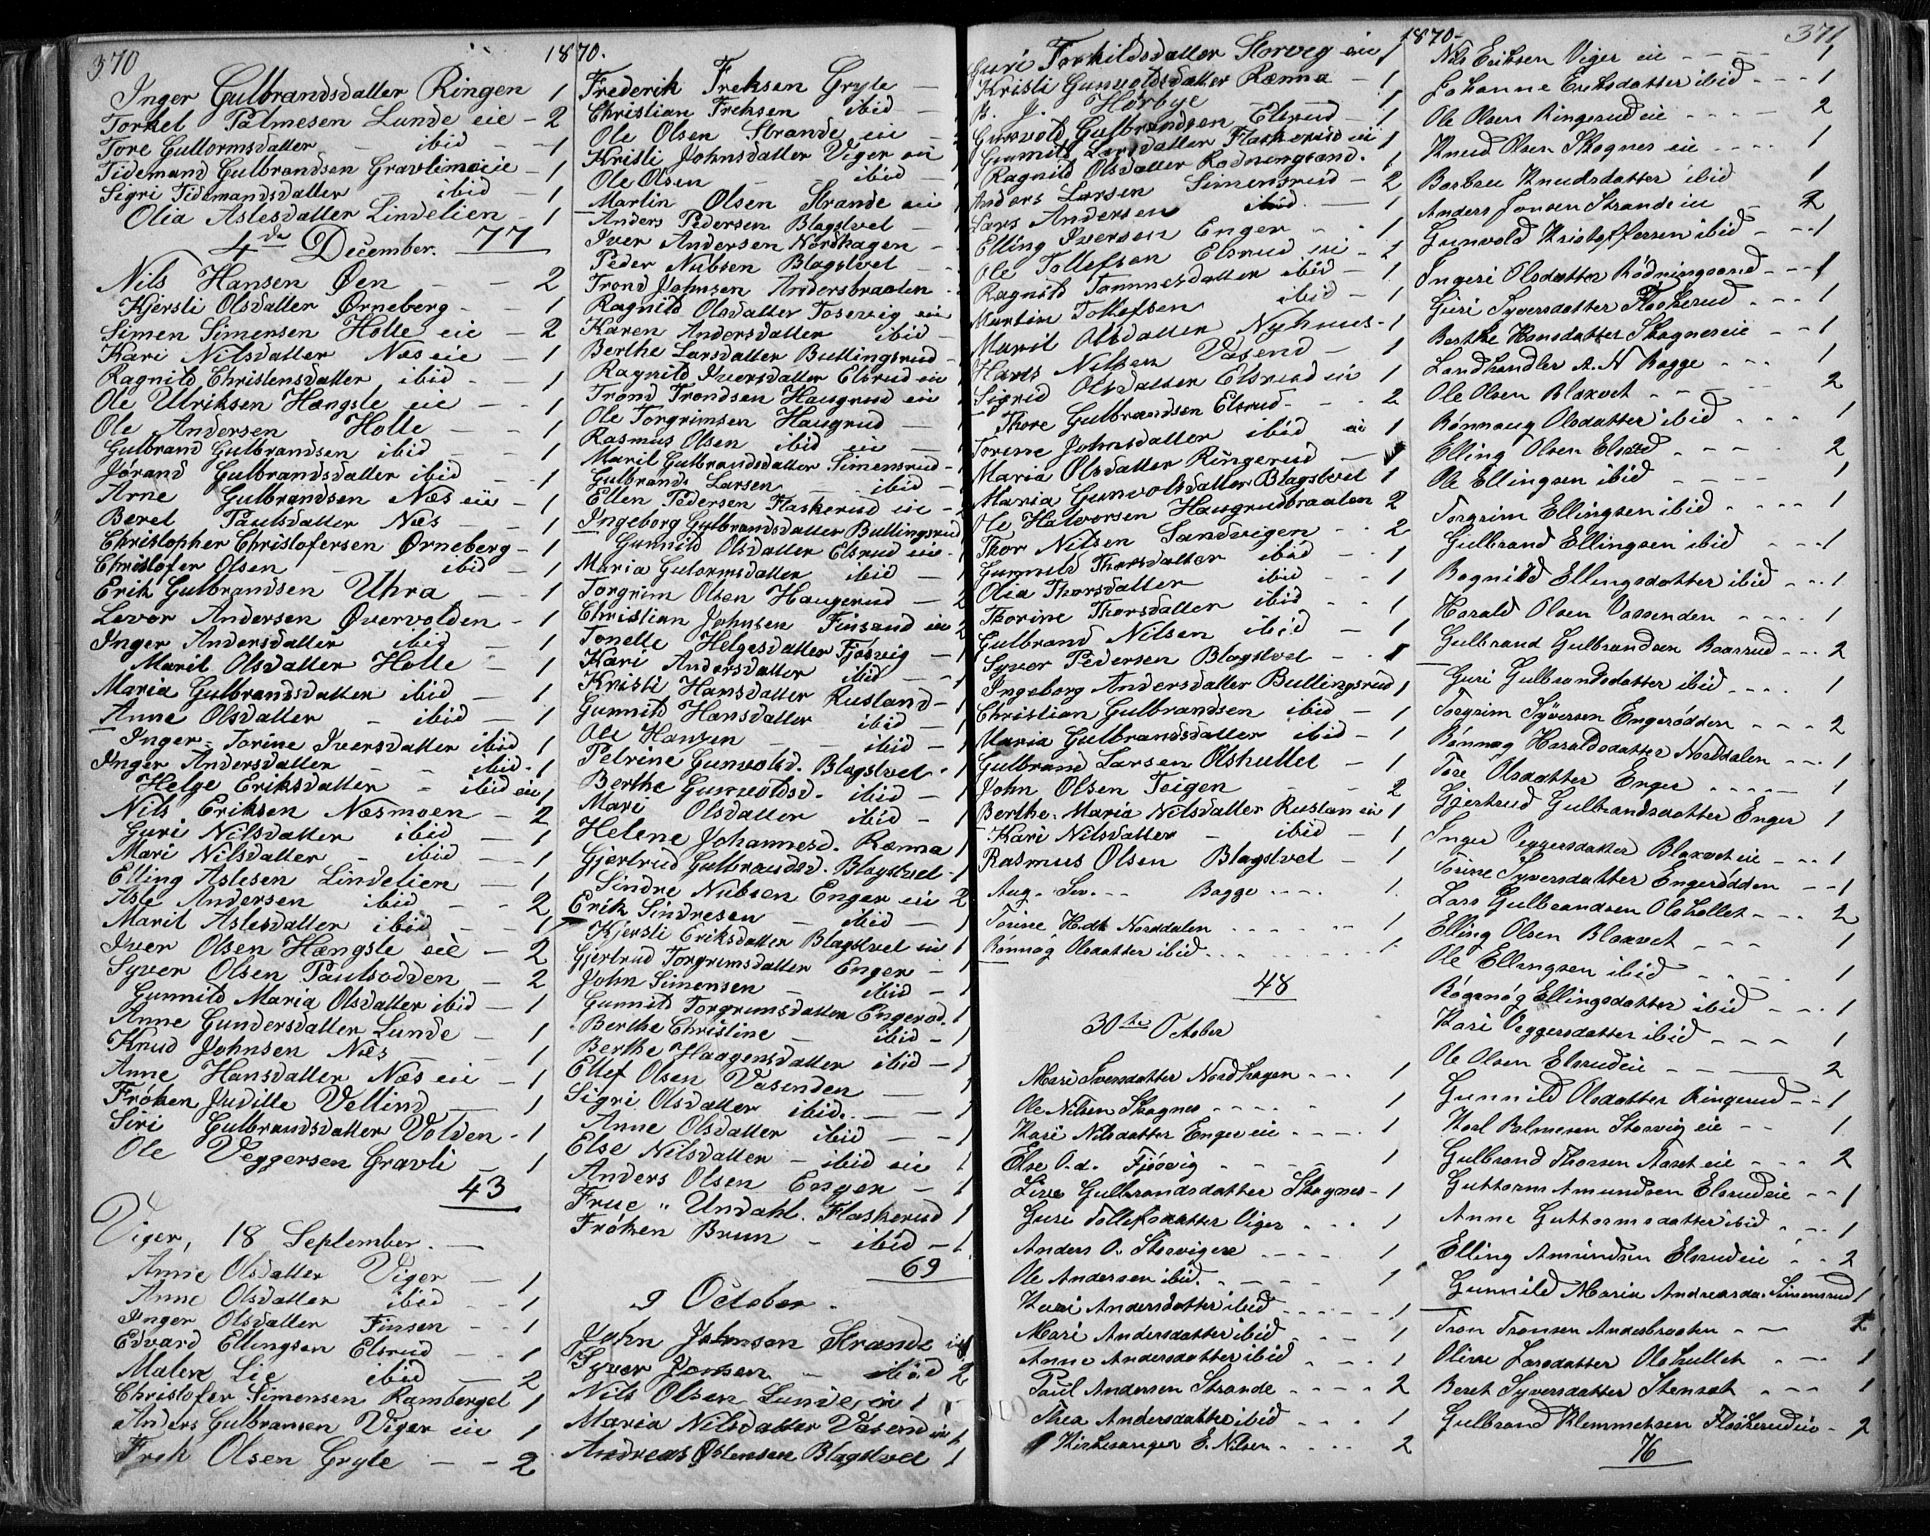 370
1870.
Inger Gulbrandsdatter Ringen 1
Torkel Palmesen Lunde eie - 2
Tore Guttormsdatter - ibid - 1
Tidemand Gulbrandsen Gravlimoeie - 1
Sigri Tidemandsdatter - ibid - 1
Olia Aslesdatter Lindelien - 1
4de December. 77
Nils Hansen Øen - - 2
Kjersti Olsdatter Ørneberg - - 1
Simen Simensen Holte eie - 2
Kari Nilsdatter Næs eie - 1
Ragnild Christensdatter ibid - 1
Ole Ulriksen Hængsle eie - 1
Ole Andersen Holte - - 1
Gulbrand Gulbrandsen ibid - - 1
Jørand Gulbrandsdatter ibid - - 1
Arne Gulbrandsen Næs eie - 1
Beret Paulsdatter Næs - - 1
Christopher Christofersen Ørneberg - 1
Christofer Olsen - ibid - 1
Erik Gulbrandsen Uhra - - 1
Levor Andersen Øvervolden - 1
Inger Andersdatter ibid - 1
Marit Olsdatter Holte - 1
Maria Gulbrandsdatter ibid - 1
Anne Olsdatter - ibid - 1
Inger-Torine Iversdatter ibid 1
Inger Andersdatter - - ibid. 1
Helge Eriksdatter - ibid eie 1
Nils Eriksen Næsmoen - 2
Guri Nilsdatter ibid - 1
Mari Nilsdatter - ibid - - 1
Elling Aslesen Lindelien - 1
Asle Andersen ibid - - 2
Marit Aslesdatter ibid - - 1
Iver Olsen Hængsle eie - 2
Syver Olsen Paulsodden - 2
Gunnild Maria Olsdatter ibid - 1
Anne Gundersdatter Lunde - 1
Knud Johnsen Næs - - 1
Anne Hansdatter Næs eie - 1
Frøken Juditte Velling - 1
Siri Gulbrandsdatter Volden - 1
Ole Veggersen Gravli - 1
43
Viger, 18 September. -
Anne Olsdatter Viger - 1
Anne Olsdatter ibid - - 1
Inger Olsdatter Finsen - - 1
Edvard Ellingsen Elsrud - - 1
Maler Lie ibid - 2
Christofer Simensen Ramberget 1
Anders Gulbransen Viger eie 1
Frek Olsen Gryte - - 2
Frederik Freksen Gryte - 1
Christian Freksen ibid -
Ole Olsen Strande eie -
Kristi Johnsdatter Viger eie
Ole Olsen - - ibid - 1
Martin Olsen Strande eie 1
Anders Pedersen Blagstvet -
Iver Andersen Nordhagen -
Peder Nubsen Blagstvet - -
Trond Johnsen Andersbraaten -
Ragnild Olsdatter Tosevig eie
Karen Andersdatter ibid -
Berthe Larsdatter Bullingsrud -
Ragnild Iversdatter Elsrud eie 1
Trond Trondsen Haugrud eie
Ole Torgrimsen Haugrud - 1
Rasmus Olsen ibid eie -
Marit Gulbrandsdatter Simensrud - 1
Gulbrands Larsen - ibid - 1
Ellen Pedersen Flaskerud eie - 2
Ingeborg Gulbrandsdatter Bullingsrud
Gunnild Olsdatter Elsrud eie - 1
Maria Gutormsdatter ibid - 1
Torgrim Olsen Haugerud - 2
Christian Johnsen Finsand eie 2
Tonette Helgesdatter Fjøsvig - 1
Kari Andersdatter ibid - - 1
Kristi Hansdatter Rusland - 1
Gunnild Hansdatter ibid - 1
Ole Hansen - - ibid - 1
Petrine Gunvoldsd. Blagstvet - 1
Berthe Gunvoldsd. ibid - 1
Mari Olsdatter ibid - 1
Helene Johannesd. Ræmna 1
Gjertrud Gulbrandsd. Blagstvet - 1
Sindre Nubsen Enger eie 2
Erik Sindresen - ibid - 1
Kjersti Eriksdatter Blagstvet eie 1
Gjertrud Torgrimsdatter Enger - 1
John Simensen - ibid - 1
Gunnild Torgrimsdatter Engerod. 1
Berthe Christine - ibid - 1
Berthe Haagensdatter ibid - 1
Ellef Olsen Vasenden - 1
Sigri Olsdatter ibid. - - 1
Anne Olsdatter ibid - - 1
Else Nilsdatter - ibid eie 1
Anders Olsen Enger - 1
Frue " Undahl. Flaskerud 1
Frøken Brun - ibid - 1
69
9 October.
John Johnsen Strande eie 1
Syver Jonsen " ibid 2
Nils Olsen Lunde eie 1
Maria Nilsdatter Vasend eie 1
Andreas Østensen Blagstvet 1
371
1870-
Guri Torkildsdatter Storvig eie 1
Kristi Gunvoldsdatter Ræmna - 1
B. J. Hørbye 1
Gunvold Gulbrandsen Elsrud - 1
Gunnild Larsdatter Flaskerud eie 1
Ragnild Olsdatter Rødningsand. 1
Anders Larsen Simensrud - 2
Lars Andersen ibid. - 1
Elling Iversen Enger - - 1
Ole Tollefsen Elsrud eie - 2
Ragnild Tommesdatter ibid - 1
Martin Tollefsen ibid - 1
Marit Olsdatter Nyhuus - 1
Hans Nilsen Vasend - 1
Sigrid Olsdatter Elsrud eie 1
Thore Gulbrandsen Elsrud - - 2
Torine Johnsdatter ibid eie 1
Maria Olsdatter Ringerud - 1
Maria Gunvolsdatter Blagstvet 1
Ole Halvorsen Haugrudbraaten 2
Thor Nilsen Sandvigen - - 2
Gunnild Thorsdatter ibid - 1
Olia Thorsdatter ibid - - 1
Thorine Thorsdatter ibid - - 1
Gulbrand Nilsen ibid - 1
Syver Pedersen Blagstvet - - 1
Ingeborg Andersdatter Bullingsrud 1
Christian Gulbrandsen ibid - 1
Maria Gulbrandsdatter ibid - 1
Gulbrand Larsen Olshullet - 1
John Olsen Teigen - - 2
Berthe-Maria Nilsdatter Ruslan eie 1
Kari Nilsdatter - ibid - 1
Rasmus Olsen Blagstvet - 1
Aug. Sev. - - Bagge - - - - 1.
Torine Hdt Norddalen - - - - - 1
Rønnog Olsdatter ibid - - - - - - 1.
48
30te October
Mari Iversdatter Nordhagen - - - 1
Ole Nilsen Skagnes - - - - - 1
Kari Nilsdatter Enger eie - - - - 1
Else O.d. Fjøsvig - - - - 1
Live Gulbrandsdatter Skagnes - 1
Guri Tollefsdatter Viger - - - 1
Anders O. Storvigen - - - - 1
Ole Andersen ibid. - - - - 1
Kari Andersdatter ibid - - - - - 1
Mari Andersdatter ibid - - - - 1
Anne Andersdatter ibid - - - - 1
Paul Andersen Strande - - - - 2
Thea Andersdatter ibid - - - - 1
Kirkesanger E. Nilsen - - - - 2
Nils Eriksen Viger eie - - - - 1
Johanne Eriksdatter ibid - - - 1
Ole Olsen Ringerud eie - - - - 2
Knud Olsen Skagnes eie - - - - 1
Barbru Knudsdatter ibid 1
Anders Jonsen Strande eie - 2
Gunvold Kristoffersen ibid - - - 1
Ingeri Olsdatter Rødningsand - - - 1
Guri Syversdatter Flaskerud - - - 1
Berthe Hansdatter Skagnes eie - - 1
Landhandler A. N Bagge - - - 1
Ole Olsen Blaxvet - - - - - 2
Rønnaug Olsdatter ibid - - - 1
Elling Olsen Elsrud - - - - 2
Ole Ellingsen ibid - - - - - 1
Torgrim Ellingsen ibid - - - - 1
Gulbrand Ellingsen ibid - - - - 1
Ragnild Ellingsdatter ibid - - - 1
Harald Olsen Vassenden - - - - 1
Gulbrand Gulbrandsen Baarrud - - - 2
Guri Gulbrandsdatter ibid - - - - 1
Torgrim Syversen Engerodden - - - 2
Rønnog Haraldsdatter Norddalen - - - 1
Tore Olsdatter Enger - - - - - 1
Gjertrud Gulbrandsdatter Enger 1
Inger Veggersdatter Blaxvet eie - - - 1
Torine Syversdatter Engerodden - - - 1
Lars Gulbrandsen Olshollet - - - 2
Elling Olsen Blaxvet - - - 1
Ole Ellingsen ibid - - - - - 1
Røgnøg Ellingsdatter ibid - - - 1
Kari Veggersdatter ibid - - - 1
Ole Olsen Elsrudeie - - - - - 2
Gunnild Olsdatter Ringerud - - 1
Karl Palmesen Storvig eie - - 1
Gulbrand Thorsen Aaset eie - - - 2
Guttorm Amundsen Elsrudeie - - 1
Anne Guttormsdatter ibid - - - 1
Elling Amundsen Elsrudeie - - 2
Gunnild Maria Andreasda. Simensrud 1
Tron Tronsen Andersbraaten - - - 2
Oline Larsdatter Olshullet - - - 1
Beret Syversdatter Stensæt - - - 1
Gulbrand Klemmetsen Flaskerudeie - 2
76